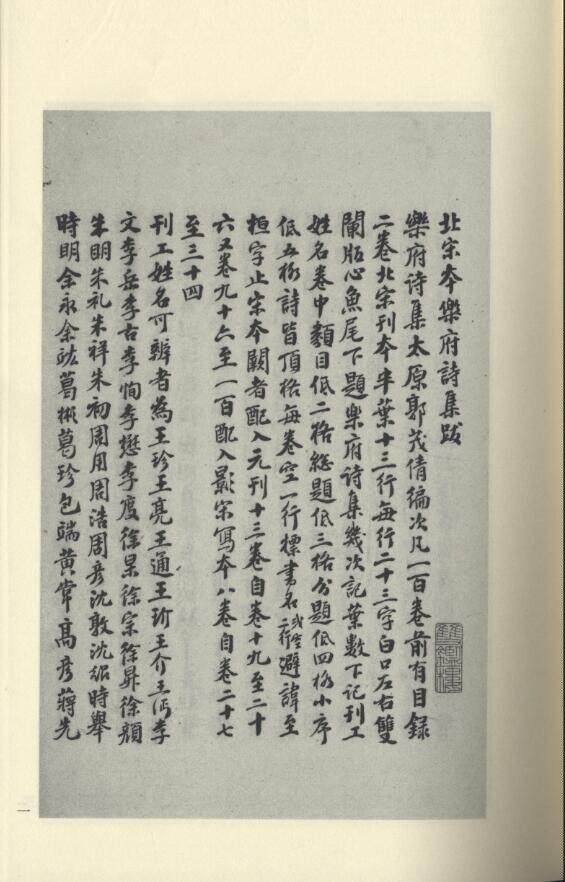 北宋本樂府詩集跋
樂府诗集太原郭茂倩編次凡一百卷前有目録
二卷北宋刊本半葉十三行每行二十三字白口左右雙
闌版心魚尾下題樂府诗集幾次記葉數下記刊工
姓名卷中類目低二格總題低三格分題低四格小序
低五格詩皆頂格每卷空一行標書名或空二行避諱至
桓字止宋本闕者配入元刊十三卷自卷十九至二十
六又卷九十六至一百配入影宋寫本八卷自卷二十七
至三十四
刊工姓名可辨者為王珍王亮王通王玠王介王沔李
文李岳李古李恂李懋李度徐杲徐宗徐昇徐顔
朱明朱礼朱祥朱初周用周浩周彦沈敦沈紹時舉
時明余永余竑葛珍包端黄常髙彦蔣先
一